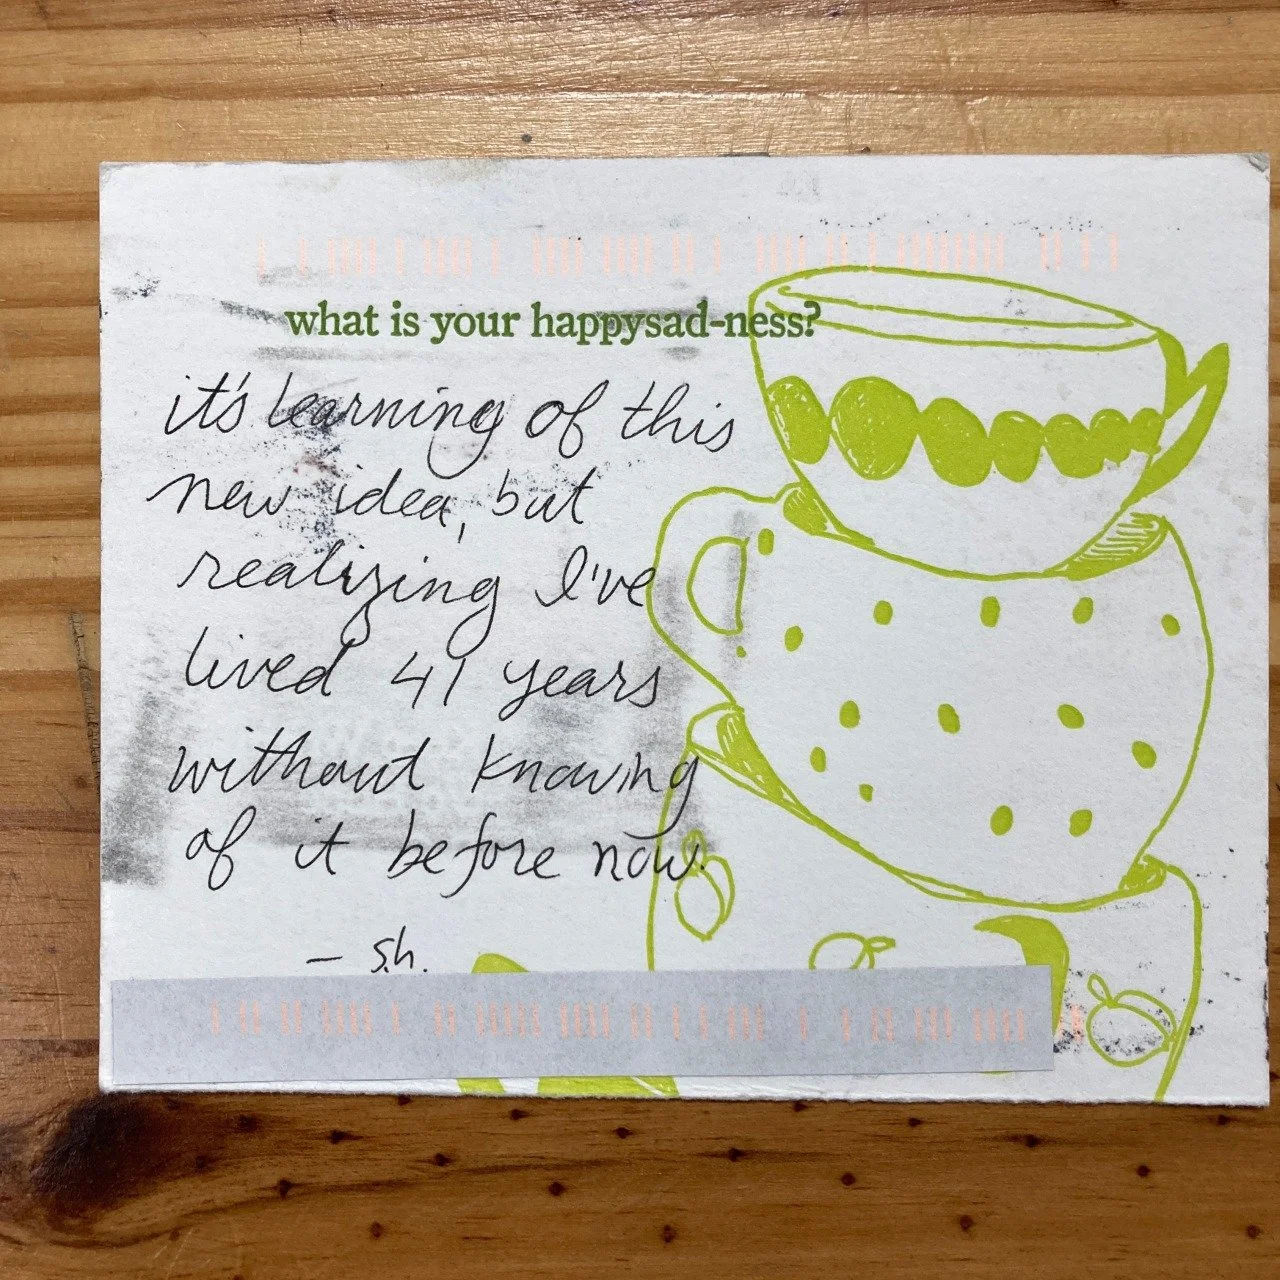 what is your happysad-ness?
it's learning of this
new idea, but
realizing I've
lived 41 years
without knowing
of it before now.
— s.h.